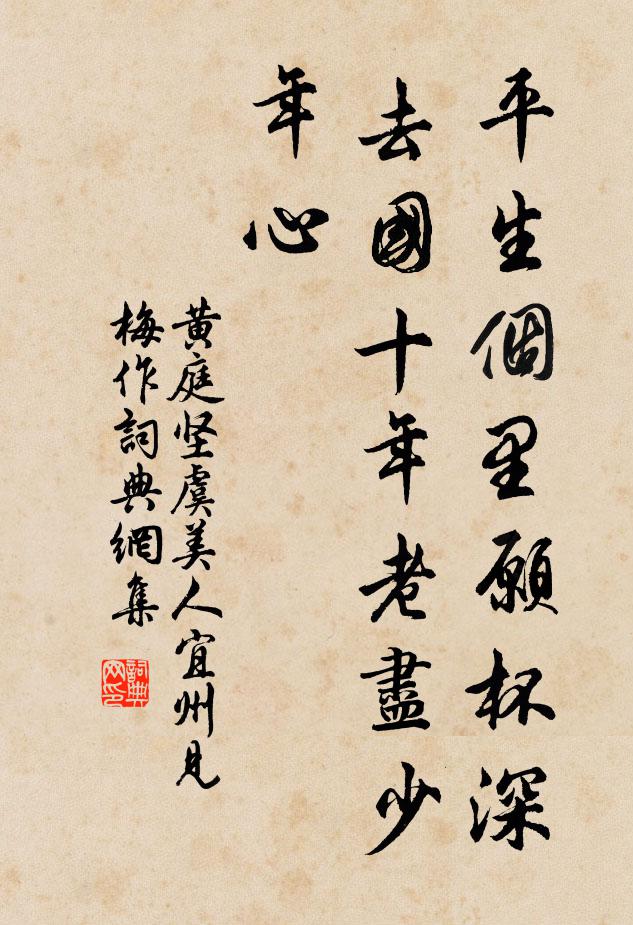 平生個里願杯深
去國十年老盡少
年心
黃庭坚虞美人宜州見
梅作詞典網集
詞典
网印